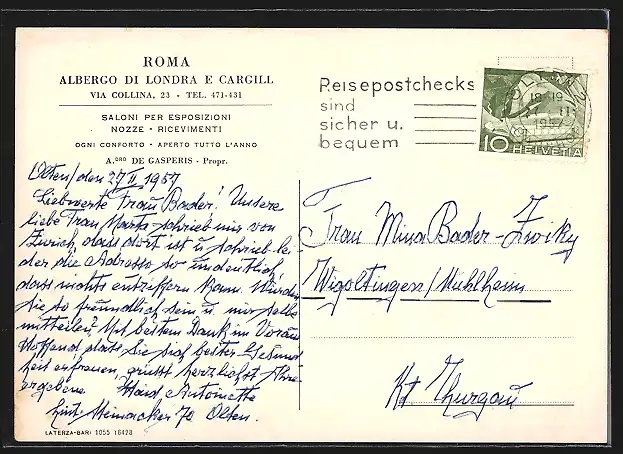 ROMA
ALBERGO DI LONDRA E CARGILL
VIA COLLINA, 23 - TEL. 471-431
SALONI PER ESPOSIZIONI
NOZZE - RICEVIMENTI
OGNI CONFORTO - APERTO TUTTO L'ANNO
A.DRO DE GASPERIS - Propr.
Reisepostchecks
sind
sicher u.
bequem
18-19
1957
10 HELVETIA
Olten/den 27 II 1957
Liebwerte Frau Bader! Unsere
liebe Frau Marta schrieb mir von
Zürich, dass dort ist u. schrieb lei-
der die Adresse so undeutlich
dass nichts entziffern kann. Würden
Sie so freundlich sein u. mir selbe
mitteilen? Mit bestem Dank im Voraus
Hoffend, dass Sie sich bester Gesund
heit erfreuen, grüsst herzlichst Ihre
ergebene Antoinette
70 Olten.
Frau Mina Bader-Zwicky
Wigoltingen/Mühlheim
Kt Thurgau
LATERZA-BARI 1055 16428